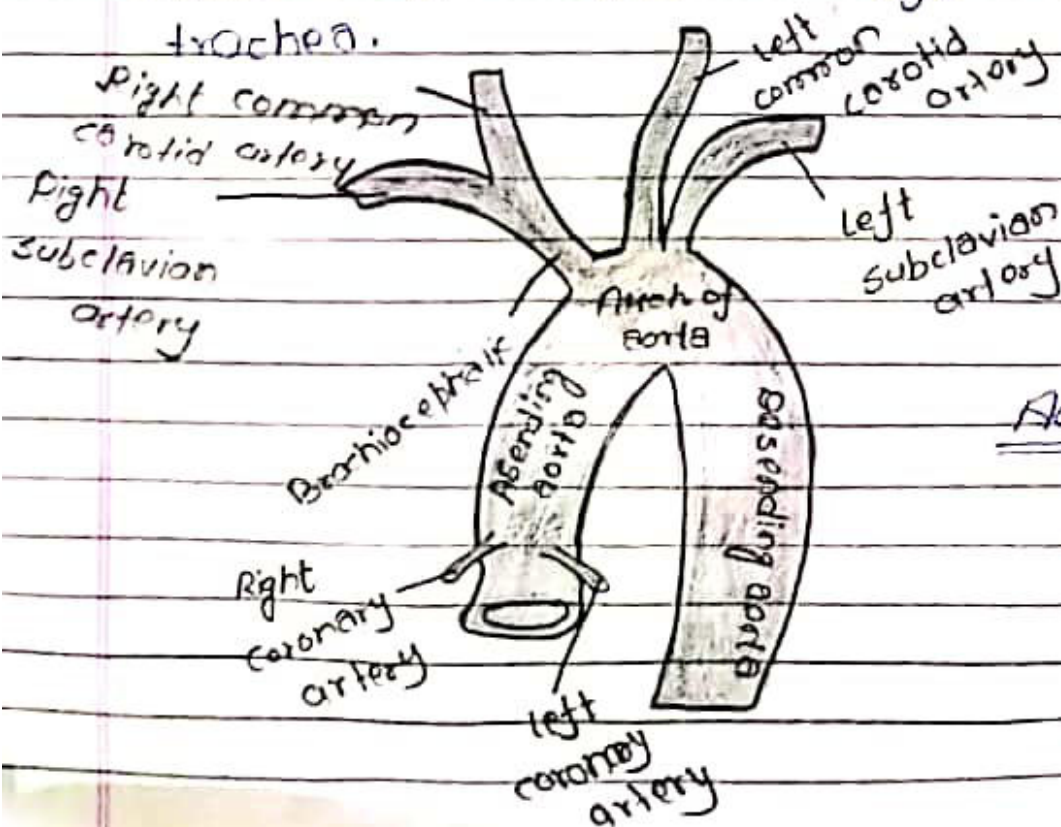 trachea.
Right common
carotid artery
Right
subclavian
artery
left
common
carotid
artery
left
subclavian
artery
Arch of
aorta
Brachiocephalic
Asending
aorta
Dasending aorta
Right
coronary
artery
left
coronay
artery